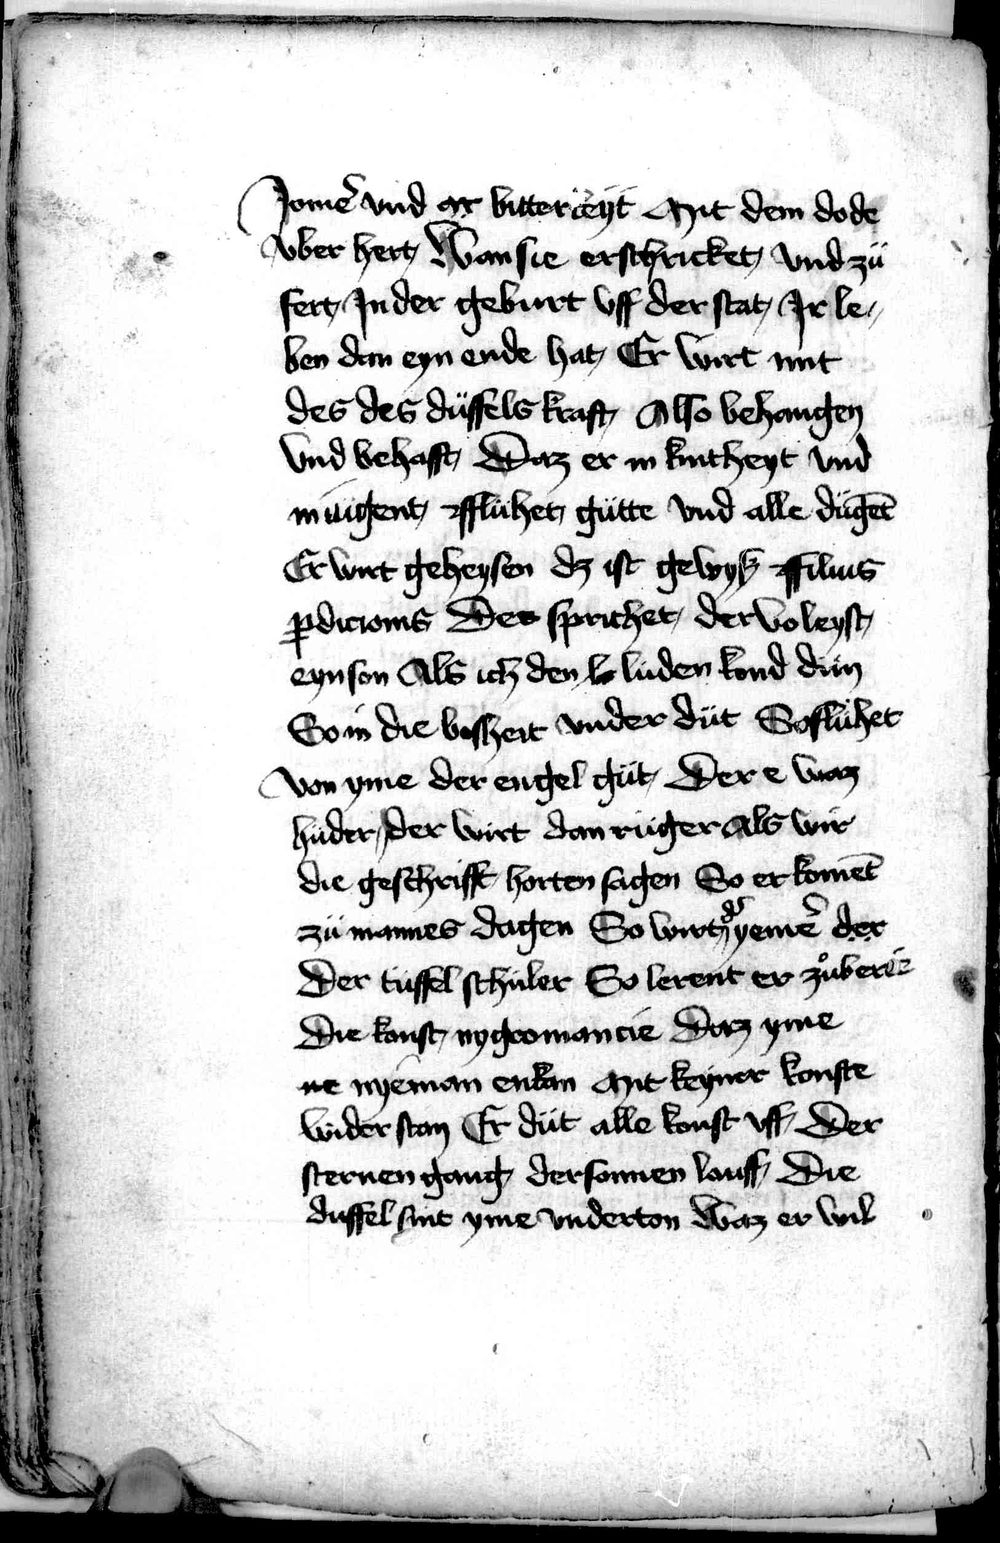 Jomer̃ vnd ar bitterkeyt Mit dem dode
vber hert Wan sie erschricket vnd zü
fert Jn der geburt vff der stat Jr le
ben dan eyn ende hat Er wirt mit
des des düffels kraft Also behangen
vnd behafft Daz er in kintheyt vnd
in iugent fflühet gütte vnd alle dügēt
Er wirt geheysen dz ist gewyß ffilius
ꝑdicionis Der sprichet der voleyst
eyn son Als ich den le lüden kond dün
So in die bosheit vnder düt So flühet
von yme der engel güt Der e waz
hüder der wirt dan rüger Als wir
die geschrifft horten sagen So er komēt
zü mannes dagen So wirt dˀ yemer̃ der
Der tuffel schüler So lerent er zůberie
Die konst nygromancie Daz yme
ne nyeman enkan Mit keyner konste
wider stan Er düt alle konst vff Der
sternen gang der sonnen lauff Die
duffel sint yme vnderton Waz er wil